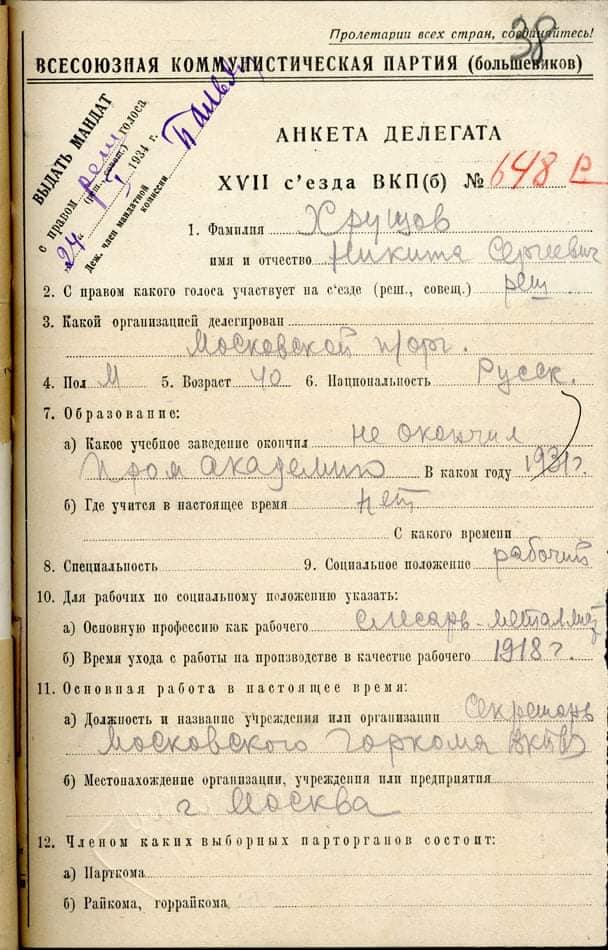 38
Пролетарии всех стран, соединяйтесь!
ВСЕСОЮЗНАЯ КОММУНИСТИЧЕСКАЯ ПАРТИЯ (большевиков)
ВЫДАТЬ МАНДАТ
с правом реш голоса
(реш., совещ.)
„24“ I 1934 г.
Деж. член мандатной
комиссии
АНКЕТА ДЕЛЕГАТА
XVII с'езда ВКП(б) № 648 Р
1. Фамилия Хрущов
имя и отчество Никита Сергеевич
2. С правом какого голоса участвует на с'езде (реш., совещ.) реш
3. Какой организацией делегирован
Московской п/орг.
4. Пол М 5. Возраст 40 6. Национальность Русск.
7. Образование:
а) Какое учебное заведение окончил не окончил
Пром академию В каком году 1931 г.
б) Где учится в настоящее время нет
С какого времени
8. Специальность 9. Социальное положение рабочий
10. Для рабочих по социальному положению указать:
а) Основную профессию как рабочего слесарь-металлист
б) Время ухода с работы на производстве в качестве рабочего 1918 г.
11. Основная работа в настоящее время:
а) Должность и название учреждения или организации Секретарь
Московского Горкома ВКПб
б) Местонахождение организации, учреждения или предприятия
г Москва
12. Членом каких выборных парторганов состоит:
а) Парткома
б) Райкома, горрайкома